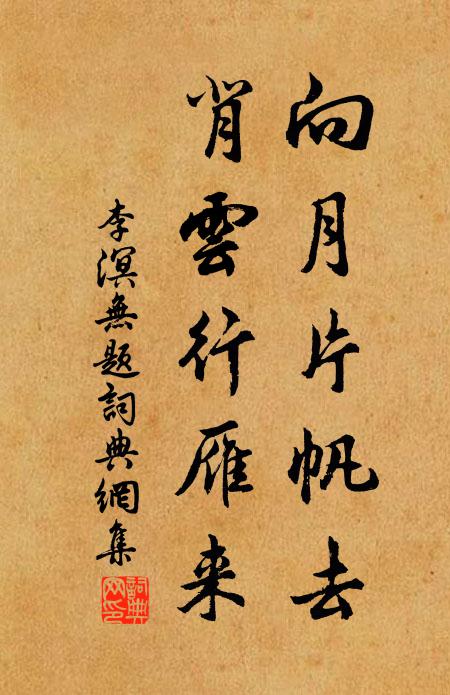 向月片帆去
背雲行雁来
李溟無題詞典網集
詞典网印